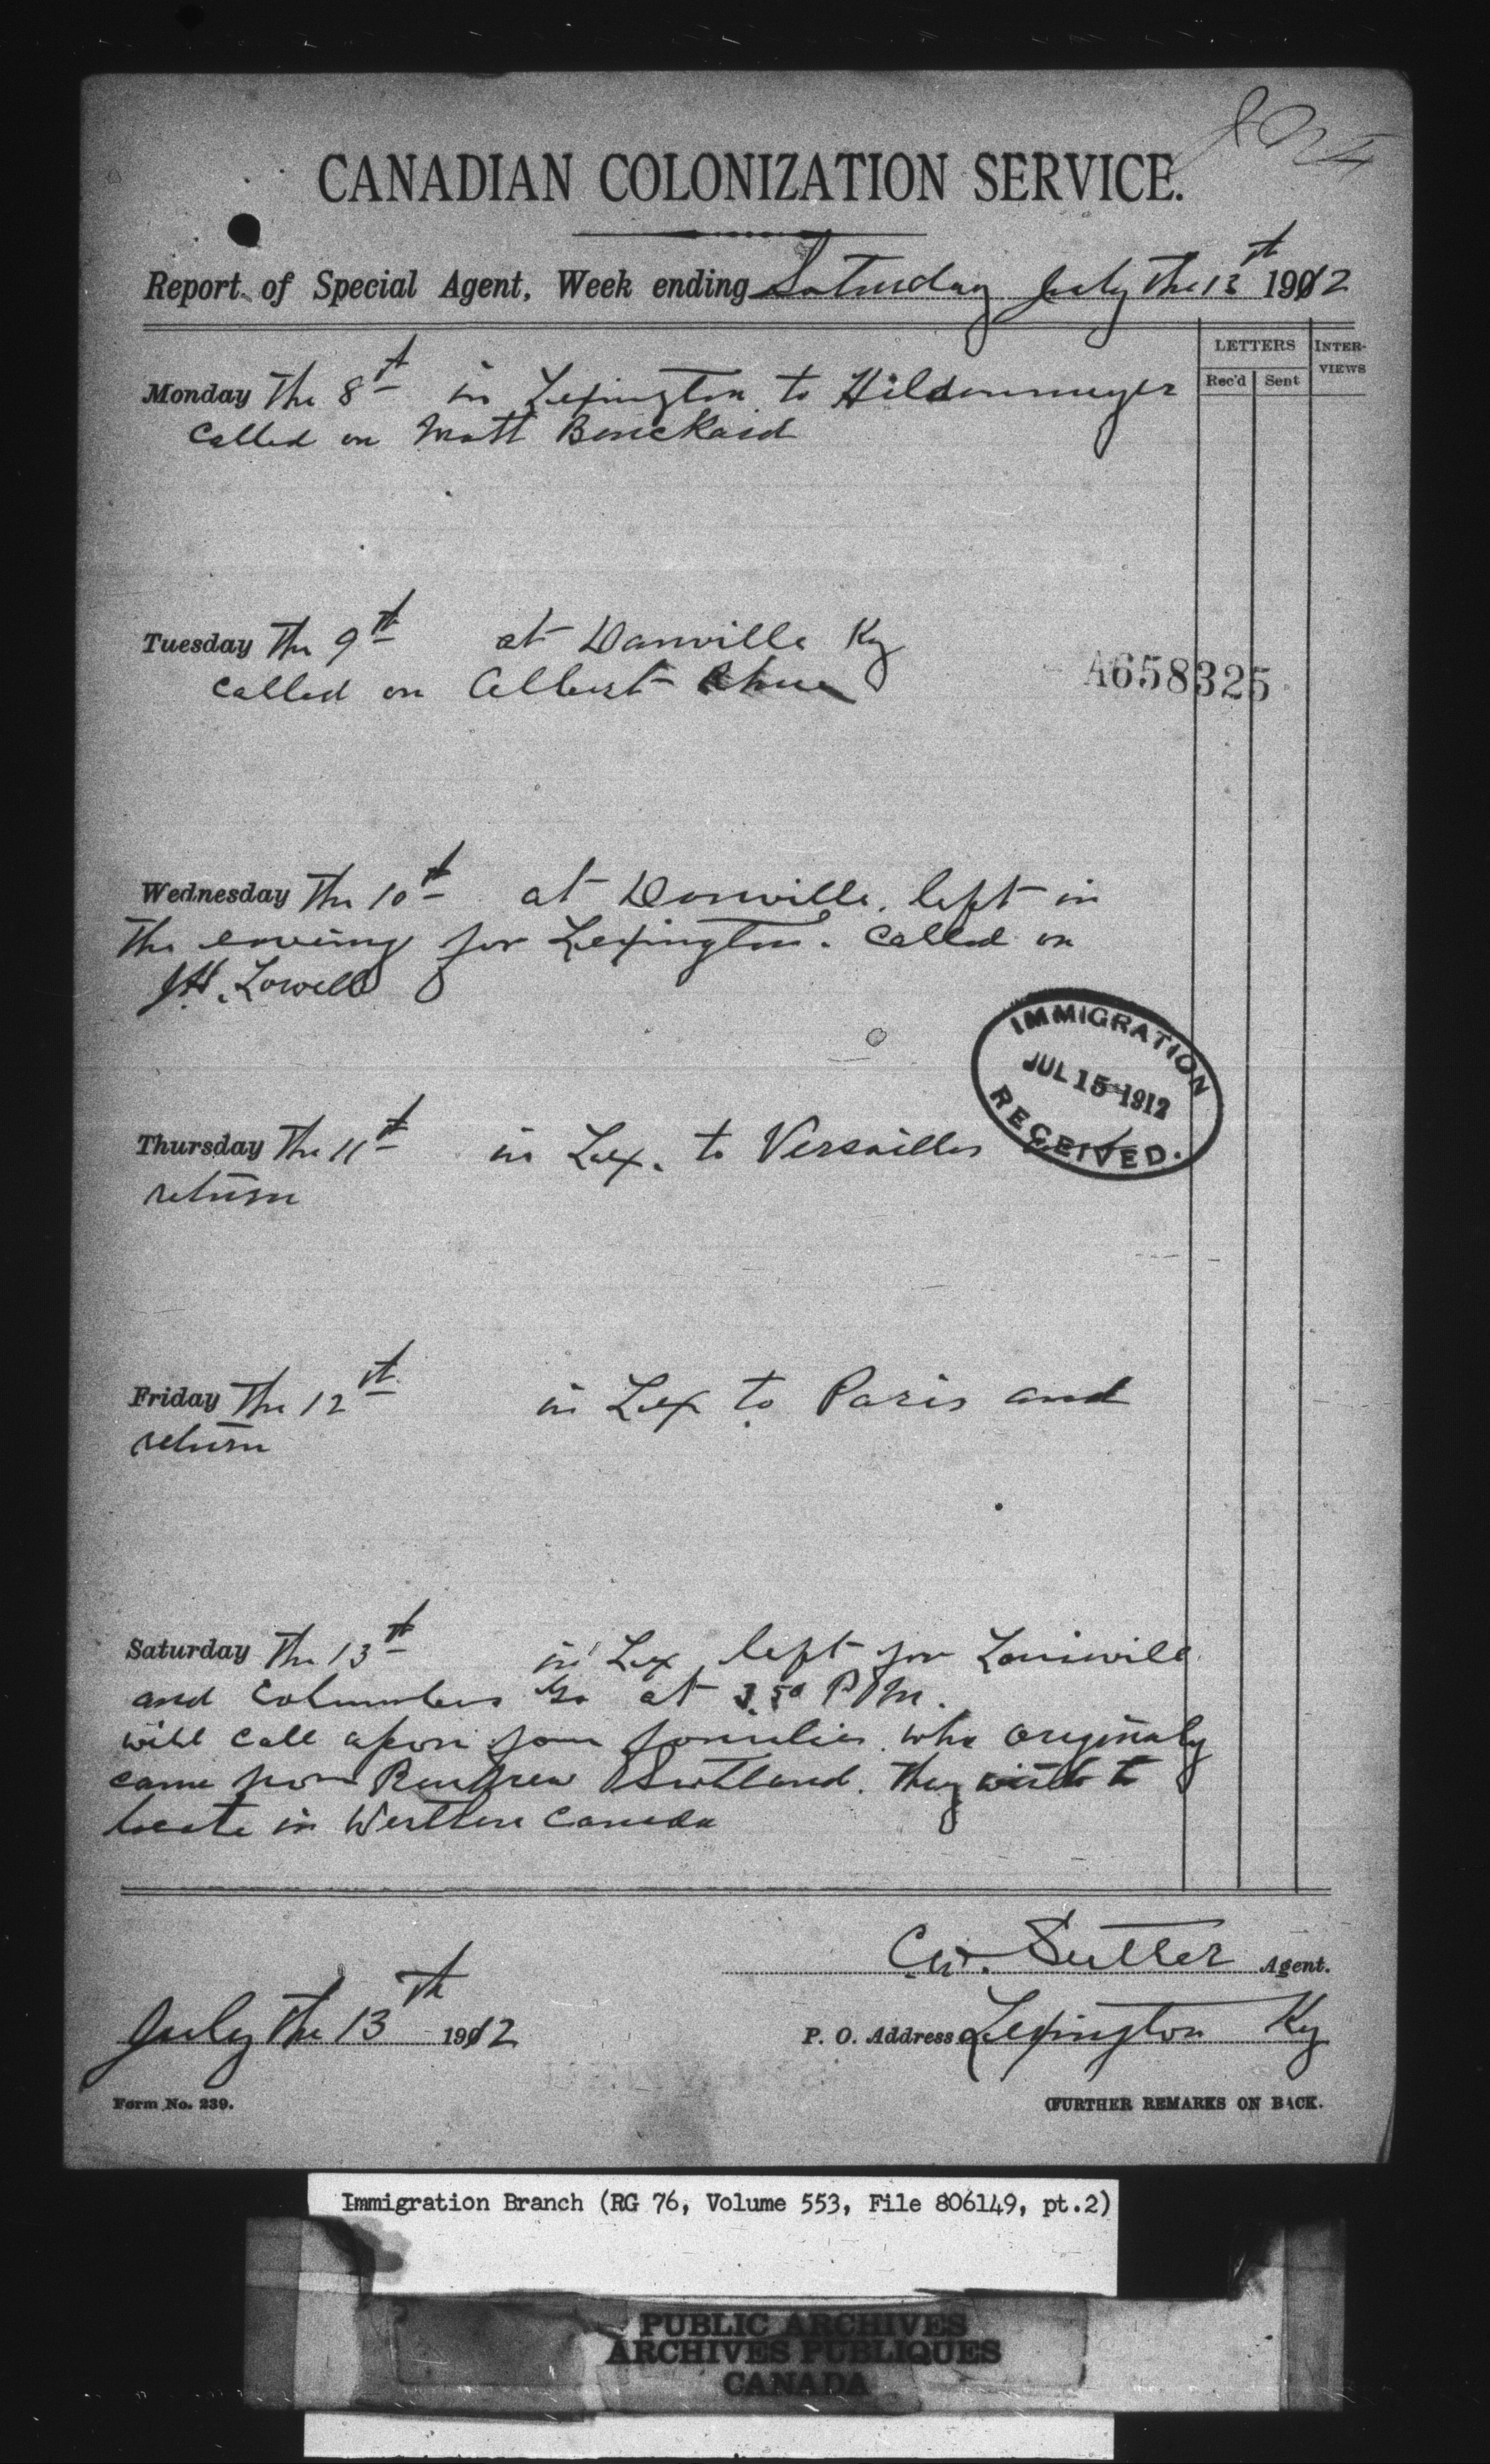 CANADIAN COLONIZATION SERVICE.
Report of Special Agent, Week ending Saturday July the 13th 1912
LETTERS
INTER-VIEWS
Rec'd Sent
Monday The 8th in Lexington to Hildenmeyer
called on Matt
Tuesday The 9th at Danville Ky
called on Albert
A658325
Wednesday The 10th at Danville. left in
the evening for Lexington. called on
J.H. Lowell
IMMIGRATION
JUL 15 1912
RECEIVED.
Thursday The 11th in Lex. to Versailles
return
Friday The 12th in Lex to Paris and
return
Saturday The 13th in Lex left for Louisville
and Columbus at 3.50 P.M.
will call upon some families who originaly
came from Renfrew Scotland. They wish to
locate in Western Canada
C.W. Sutter Agent.
July the 13th 1912
P. O. Address Lexington Ky
Form No. 239.
(FURTHER REMARKS ON BACK.
Immigration Branch (RG 76, Volume 553, File 806149, pt.2)
PUBLIC ARCHIVES
ARCHIVES PUBLIQUES
CANADA